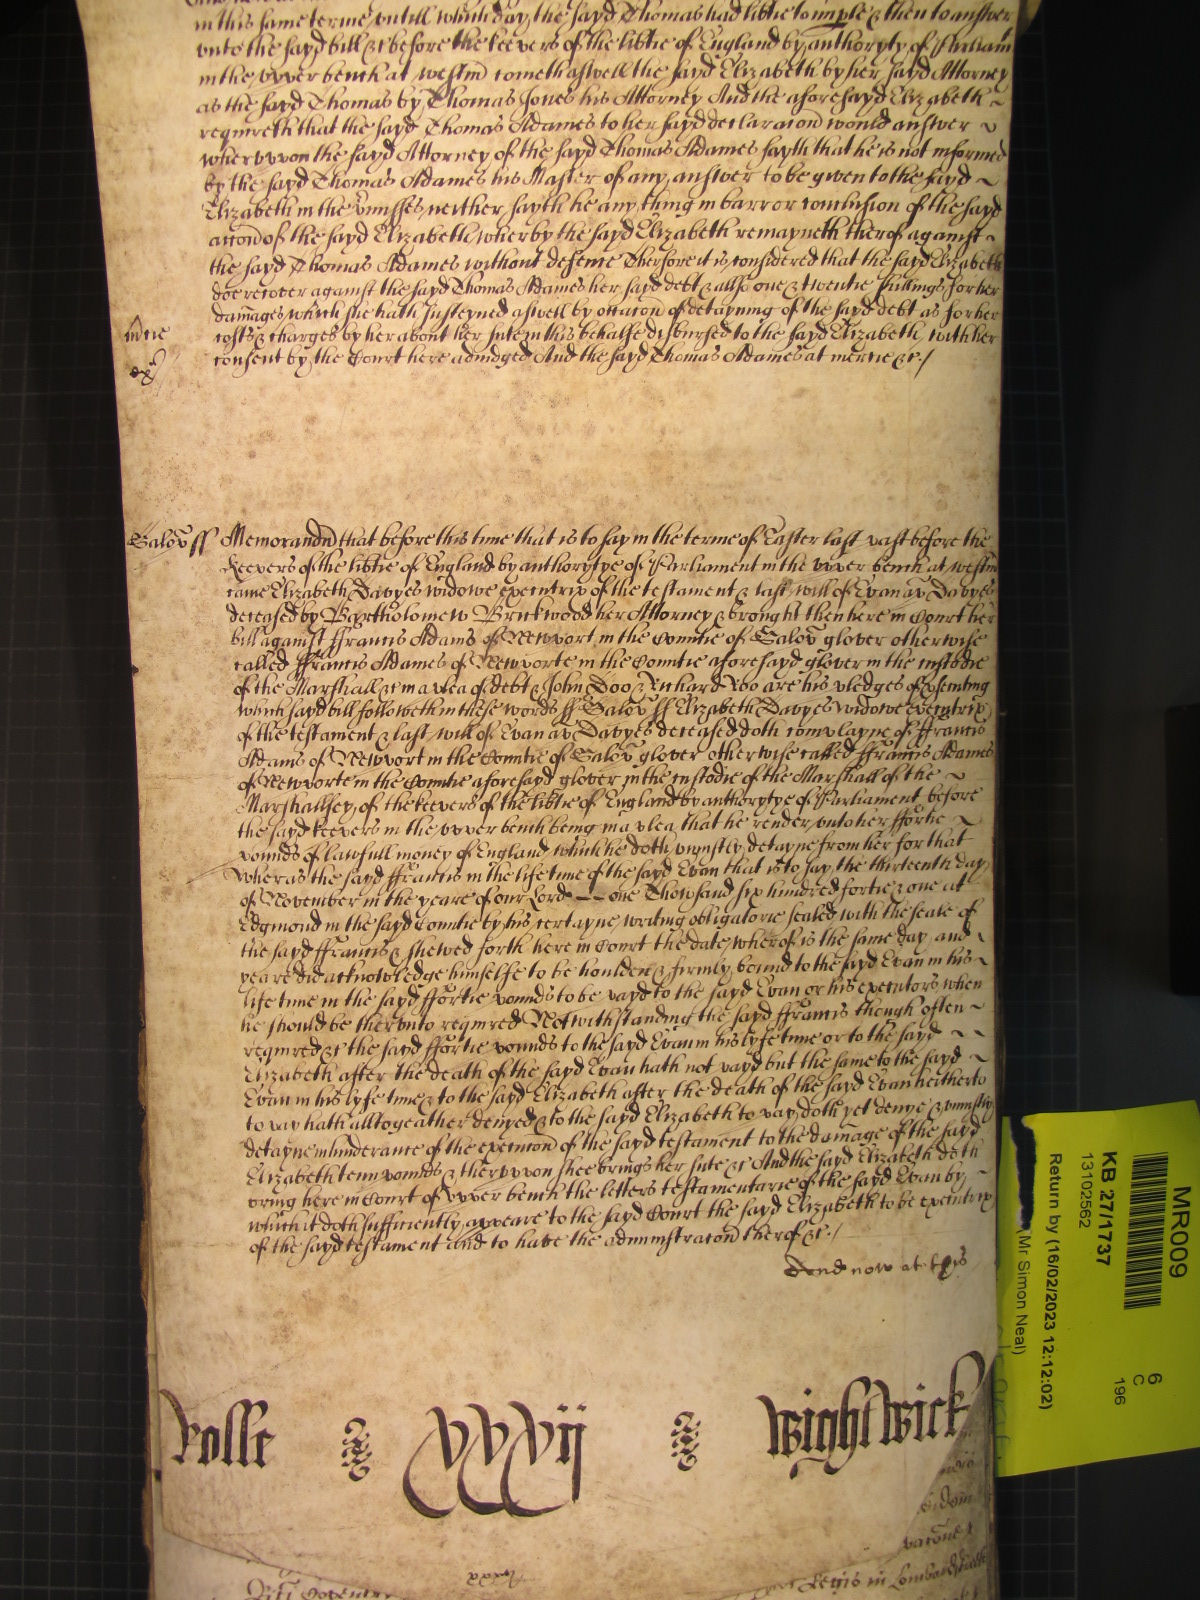 in this same terme, untill which day, the sayd Thomas had lib̃tie to imple & then to answer
unto the sayd bill &c before the keepers of the lib̃tie of England by authoryty of Parliam̃t
in the upper bench at westm̃ cometh aswell the sayd Elizabeth by her sayd Attorney
as the sayd Thomas by Thomas Jones his Attorney And the aforesayd Elizabeth
requireth that the sayd Thomas Adames to her sayd declaracõn would answer
wherupon the sayd Attorney of the sayd Thomas Adames sayth that he is not informed
by the sayd Thomas Adames his Master of any answer to be given to the sayd
Elizabeth in the p̱misses neither sayth he any thing in barr or conclusion of the sayd
accõn of the sayd Elizabeth wherby the sayd Elizabeth remayneth therof against
the sayd Thomas Adames without defence Therfore it is considered that the sayd Elizabeth
doe recover against the sayd Thomas Adames her sayd debt & allso one & twentie shillings for her
dam̃ages which she hath susteyned aswell by occacõn of detayning of the sayd debt as for her
m̃cie
costs & charges by her about her sute in this behalfe disbursed to the sayd Elizabeth with her
consent by the Court here adiudged And the sayd Thomas Adames at mercie &c./
Salop̱ ss Memorand̃ that before this time that is to say in the terme of Easter last past before the
Keepers of the lib̃tie of England by authorytye of Parliament in the upper bench at westm̃
came Elizabeth Davyes widowe executrix of the testament & last will of Evan ap Davyes
deceased by Bartholomew Brickwood her Attorney & brought then here in Court her
bill against ffrancis Adams of Newport in the Countie of Salop̱ glover otherwise
called ffrancis Adames of Newporte in the Countie aforesayd glover in the custodie
of the Marshall &c in a plea of debt & John Doo & Richard Roo are his pledges of p̱secuting
which sayd bill followeth in these words ss Salop̱ ss Elizabeth Davyes widowe executrix
of the testament & last will of Evan ap Davyes deceased doth complayne of ffrancis
Adams of Newport in the Countie of Salop̱ glover otherwise called ffrancis Adames
of Newporte in the Countie aforesayd glover in the custodie of the Marshall of the
Marshallsey, of the keepers of the lib̃tie of England by authorytye of Parliament before
the sayd keepers in the upper bench being in a plea that he render unto her ffortie
pounds of lawfull money of England which he doth uniustly detayne from her for that
wheras the sayd ffrancis in the life time of the sayd Evan that is to say the thirteenth day
of November in the yeare of our Lord -- one Thowsand six hundred fortie & one at
Edgmond in the sayd Countie by his certayne writing obligatorie sealed with the seale of
the sayd ffrancis & shewed forth here in Court the date wherof is the same day and
yeare did acknowledge himselfe to be houlden & firmly bound to the sayd Evan in his
life time in the sayd ffortie pounds to be payd to the sayd Evan or his executors when
he should be therunto required Notwithstanding the sayd ffrancis though often
required &c the sayd ffortie pounds to the sayd Evan in his lyfe time or to the sayd
Elizabeth after the death of the sayd Evan hath not payd but the same to the sayd
Evan in his lyfe time & to the sayd Elizabeth after the death of the sayd Evan heitherto
to pay hath alltogeather denyed & to the sayd Elizabeth to pay, doth yet denye & uniustly
detayne in hinderance of the execucõn of the sayd testament to the dam̃age of the sayd
Elizabeth tenn pounds & therupon shee brings her sute &c And the sayd Elizabeth doth
bring here in Court of upper bench the letters testamentarie of the sayd Evan by
which it doth sufficiently appeare to the sayd Court the sayd Elizabeth to be executrix
of the sayd testament and to have the administracõn therof &c./
And now at this
Rolle xxxvij Wightwick
MR009
6
C
196
KB 27/1737
13102562
Return by (16/02/2023 12:12:02)
(Mr Simon Neal)